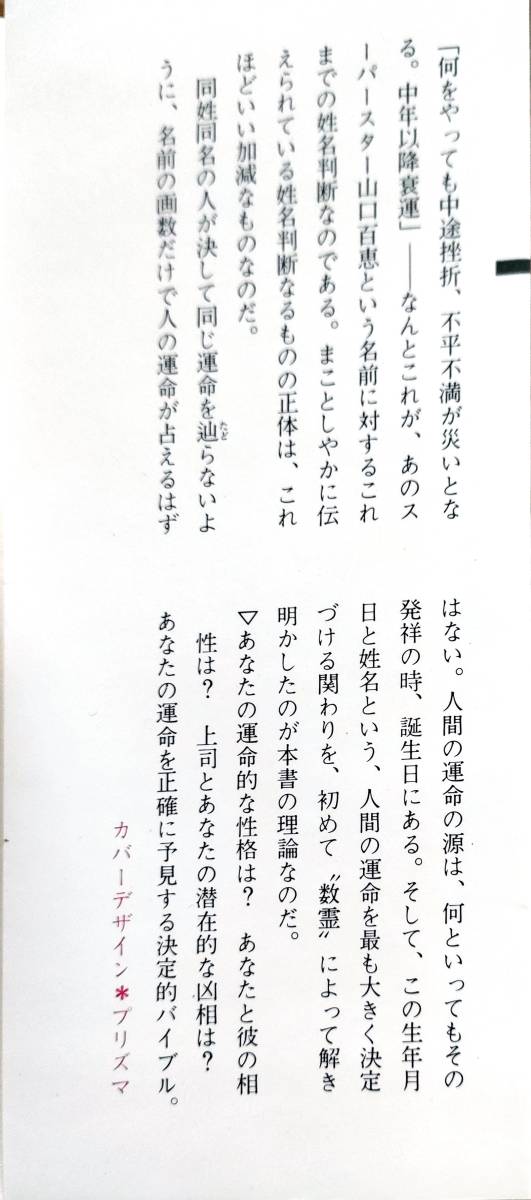 「何をやっても中途挫折、不平不満が災いとな
る。中年以降衰運」――なんとこれが、あのス
ーパースター山口百恵という名前に対するこれ
までの姓名判断なのである。まことしやかに伝
えられている姓名判断なるものの正体は、これ
ほどいい加減なものなのだ。
同姓同名の人が決して同じ運命を辿らないよ
うに、名前の画数だけで人の運命が占えるはず
はない。人間の運命の源は、何といってもその
発祥の時、誕生日にある。そして、この生年月
日と姓名という、人間の運命を最も大きく決定
づける関わりを、初めて〝数霊〟によって解き
明かしたのが本書の理論なのだ。
▽あなたの運命的な性格は? あなたと彼の相
性は? 上司とあなたの潜在的な凶相は?
あなたの運命を正確に予見する決定的バイブル。
カバーデザイン＊プリズマ